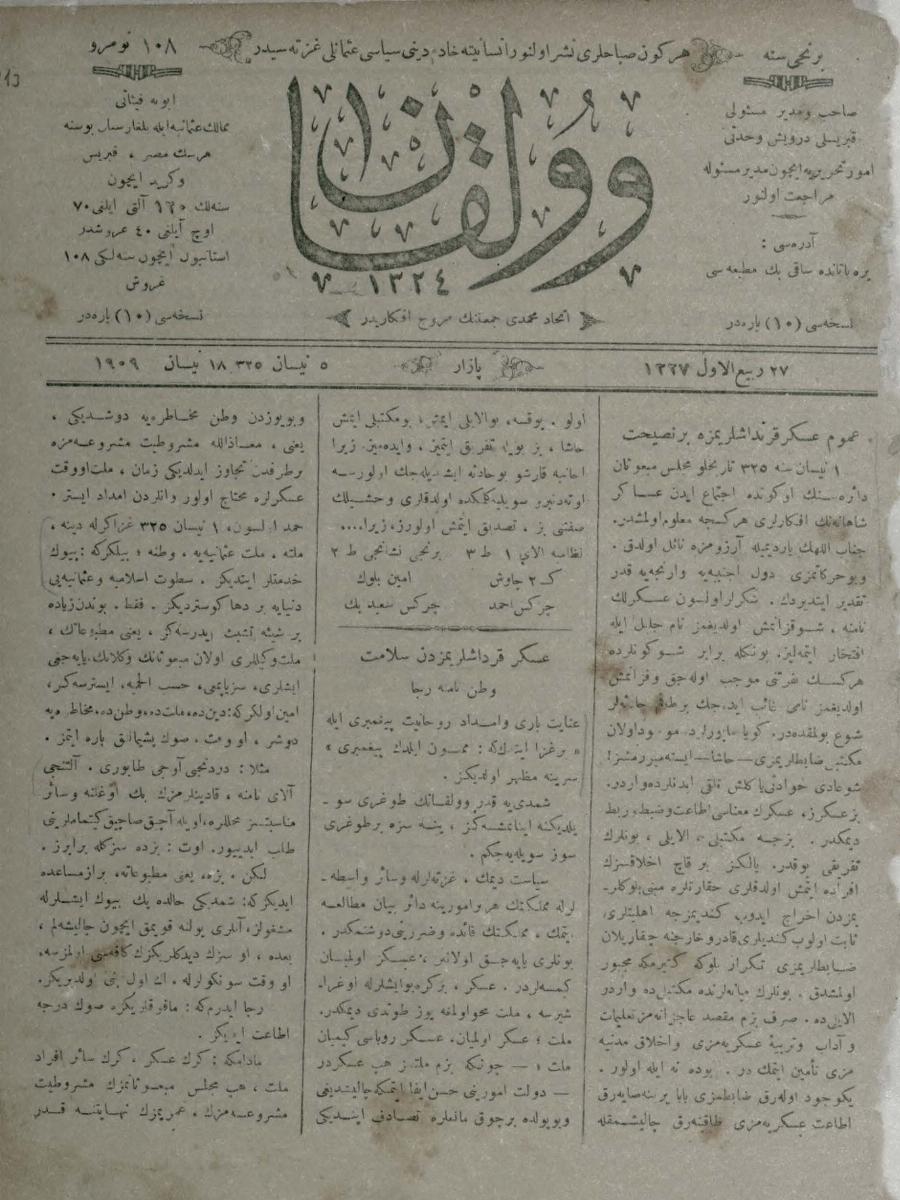 برنجی سنه
هر کون صباحلری نشر اولنور انسانیته خادم دینی سیاسی عثمانلی غزته سیدر
۱۰۸ نومرو
صاحب ومدیر مسئولی
قبریسلی درویش وحدتی
امور تحریریه ایچون مدیر مسئوله
مراجعت اولنور
آدره سی :
یره باتانده ساقی بك مطبعه سی
نسخه سی (۱۰) پاره در
وولقان
۱۳۲٤
اتحاد محمدی جمعیتنك مروج افکاریدر
ابونه فیئاتی
ممالك عثمانیه ایله بلغارستان بوسنه
هرسك مصر ، قبریس
وکرید ایچون
سنه لك ۱۳۰ آلتی ایلغی ۷۰
اوچ آیلغی ٤۰ غروشدر
استانبول ایچون سنه لکی ۱۰۸
غروش
نسخه سی (۱۰) پاره در
۲۷ ربیع الاول ۱۳۲۷
پازار
۵ نیسان ۳۲۵ ۱۸ نیسان ۱۹۰۹
عموم عسکر قرنداشلریمزه بر نصیحت
۱ نیسان سنه ۳۲۵ تاریخلو مجلس مبعوثان
دائره سنك اوکونده اجتماع ایدن عساکر
شاهانه نك افکارلری هرکسجه معلوم اولمشدر.
جناب اللهك یاردیمیله آرزومزه نائل اولدق .
وبو حرکاتمزی دول اجنبیه یه وارنجیه قدر
تقدیر ایتدیردك . شکرلر اولسون عسکرلك
نامنه ، شو قزانمش اولدیغمز نام جلیل ایله
افتخار ایتمه لیز. بونکله برابر شو کونلرده
هرکسك نفرتنی موجب اوله جق وقزانمش
اولدیغمز نامی غائب ایده جك برطاقم
شیوع بولمقده در.
مکتبلی ضابطلریمزی — حاشا — ایسته میورمشز !
شو عادی حوادثی یاکلش تلقی ایدنلرده واردر.
بز عسکرز ، عسکرك معناسی اطاعت وضبط وربط
دیمکدر . بزجه مکتبلی ، آلایلی ، بونلرك
تفریقی یوقدر. یالکز بر قاچ اخلاقسزك
افراده ایتمش اولدقلری حقارتلره مبنی بلوکلر-
یمزدن اخراج ایدوب کندیمزجه اهلیتلری
ثابت اولوب کندیلری قادرو خارجنه چیقاریلان
ضابطلریمزی تکرار بلوکه کتیرمکه مجبور
اولمشدق . بونلرك میانه لرنده مکتبلی ده واردر
آلایلی ده . صرف بزم مقصد عاجزانه مز تعلیمات
و آداب وتربیهٔ عسکریه مزی واخلاق مدنیه
مزی تأمین ایتمك در . بوده نه ایله اولور .
یکوجود اوله رق ضابطمزی بابا یرینه صایه رق
اطاعت عسکریه مزی طاقنه رق چالیشمقله
اولور . یوقسه ، بو الایلی ایمش ، بو مکتبلی ایمش
حاشا ، بز بویله تفریق ایتمیز ، وایده میز. زیرا
اجانبه قارشو بو حادثه ایشیدیله جك اولورسه
اوته دنبری سویلنمکده اولدقلری وحشیلك
صفتنی بز ، تصدیق ایتمش اولورز، زیرا....
نظامیه آلای ۱ ط ۳ برنجی نشانجی ط ۲
ك ۲ چاوش امین بلوك
چرکس احمد چرکس سعید بك
عسکر قرداشلریمزدن سلامت
وطن نامنه رجا
عنایت باری وامداد روحانیت پیغمبری ایله
« بر غزا ایتدك که : ممنون ایلدك پیغمبری »
سرینه مظهر اولدیکز .
شمدی یه قدر وولقانك طوغری سو-
یلدیکنه اینانمشدکز ، ینه سزه بر طوغری
سوز سویله یه جکم .
سیاست دیمك . غزته لرله وسائر واسطه-
لرله مملکتك هر بر امورینه دائر بیان مطالعه
ایتمك ، مملکتك فائده وضررینی دوشنمکدر .
بونلری یاپه جق اولانلر ، عسکر اولمیان
کمسه لردر . عسکر ، بر کره بو ایشلرله اوغرا-
شیرسه ، ملت محو اولمغه یوز طوتدی دیمکدر.
ملت ؛ عسکر اولمیان، عسکر روباسی کیمیان
ملت ، — چونکه بزم ملتمز هب عسکردر
— دولت امورینی حسن ایفا ایتمکه چالیشدیغی
وبو یولده بر چوق مانعلره تصادف ایتدیکی
وبو یوزدن وطن مخاطره یه دوشدیکی .
یعنی ، معاذالله مشروطیت مشروعه مزه
بر طرفدن تجاوز ایدلدیکی زمان ، ملت اووقت
عسکرلره محتاج اولور وانلردن امداد ایستر .
حمد اولسون، ۱ نیسان ۳۲۵ غزاکزله دینه ،
ملته ، ملت عثمانیه یه ، وطنه ؛ بیلکز که : بیوك
خدمتلر ایتدیکز . سطوت اسلامیه وعثمانیه یی
دنیایه بر دها کوستردیکز . فقط . بوندن زیاده
بر شیئه تشبث ایدرسه کز ، یعنی مطبوعاتك ،
ملت وکیللری اولان مبعوثانك وکلانك یاپه جغی
ایشلری، سز یاپمغی، حسب الحمیه، ایسترسه کز،
امین اولکز که : دین ده، ملت ده، وطن ده، مخاطره یه
دوشر ، او وقت ، صوك پشیمانلق پاره ایتمز .
مثلا : دردنجی آوجی طابوری . آلتنجی
آلای نامنه ، قادینلرمزك بك اوغلنه وسائر
مناسبتسز محللره، اویله آچیق صاچیق کیتمامه لرینی
طلب ایدییور. اوت : بزده سزکله برابرز .
لکن ، بزه، یعنی مطبوعاته، براز مساعده
ایدیکز که : شمدیکی حالده پك بیوك ایشلرله
مشغولز، آنلری یولنه قویمق ایچون چالیشه لم ،
بعده ، او سزك دیدکلریکزك کافه سی اولمزسه،
او وقت سونکولرله ، اك اول بنی اولدیریکز.
رجا ایدرم که : مافوقلریکزه صوك درجه
اطاعت ایدیکز .
مادامکه : کرك عسکر ، کرك سائر افراد
ملت ، هب مجلس مبعوثانمزك مشروطیت
مشروعه مزك ، عمریمزك نهایتنه قدر